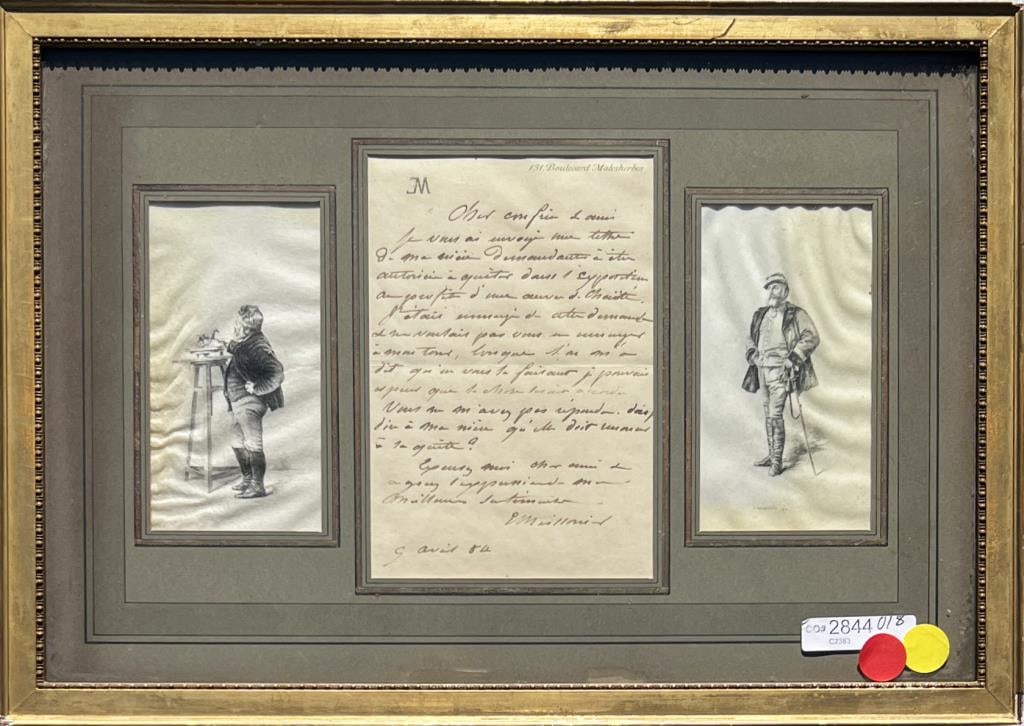 131, Boulevard Malesherbes
EM
Cher confrère & ami
Je vous ai envoyé une lettre
de ma nièce demandant à être
autorisée à quêter dans l'Exposition
au profit d'une œuvre d. Charité.
J'étais ennuyé de cette demande
& ne voulais pas vous en ennuyer
à mon tour, lorsque l'on m'a
dit qu'en vous le faisant je pouvais
espérer que la chose serait accordée
Vous ne m'avez pas répondu. dois
dire à ma nièce qu'elle doit renoncer
à la quête?
Excusez moi cher ami &
agréez l'expression de mes
meilleurs sentiments
EMeissonier
9 avril 84
2844 018
C2383